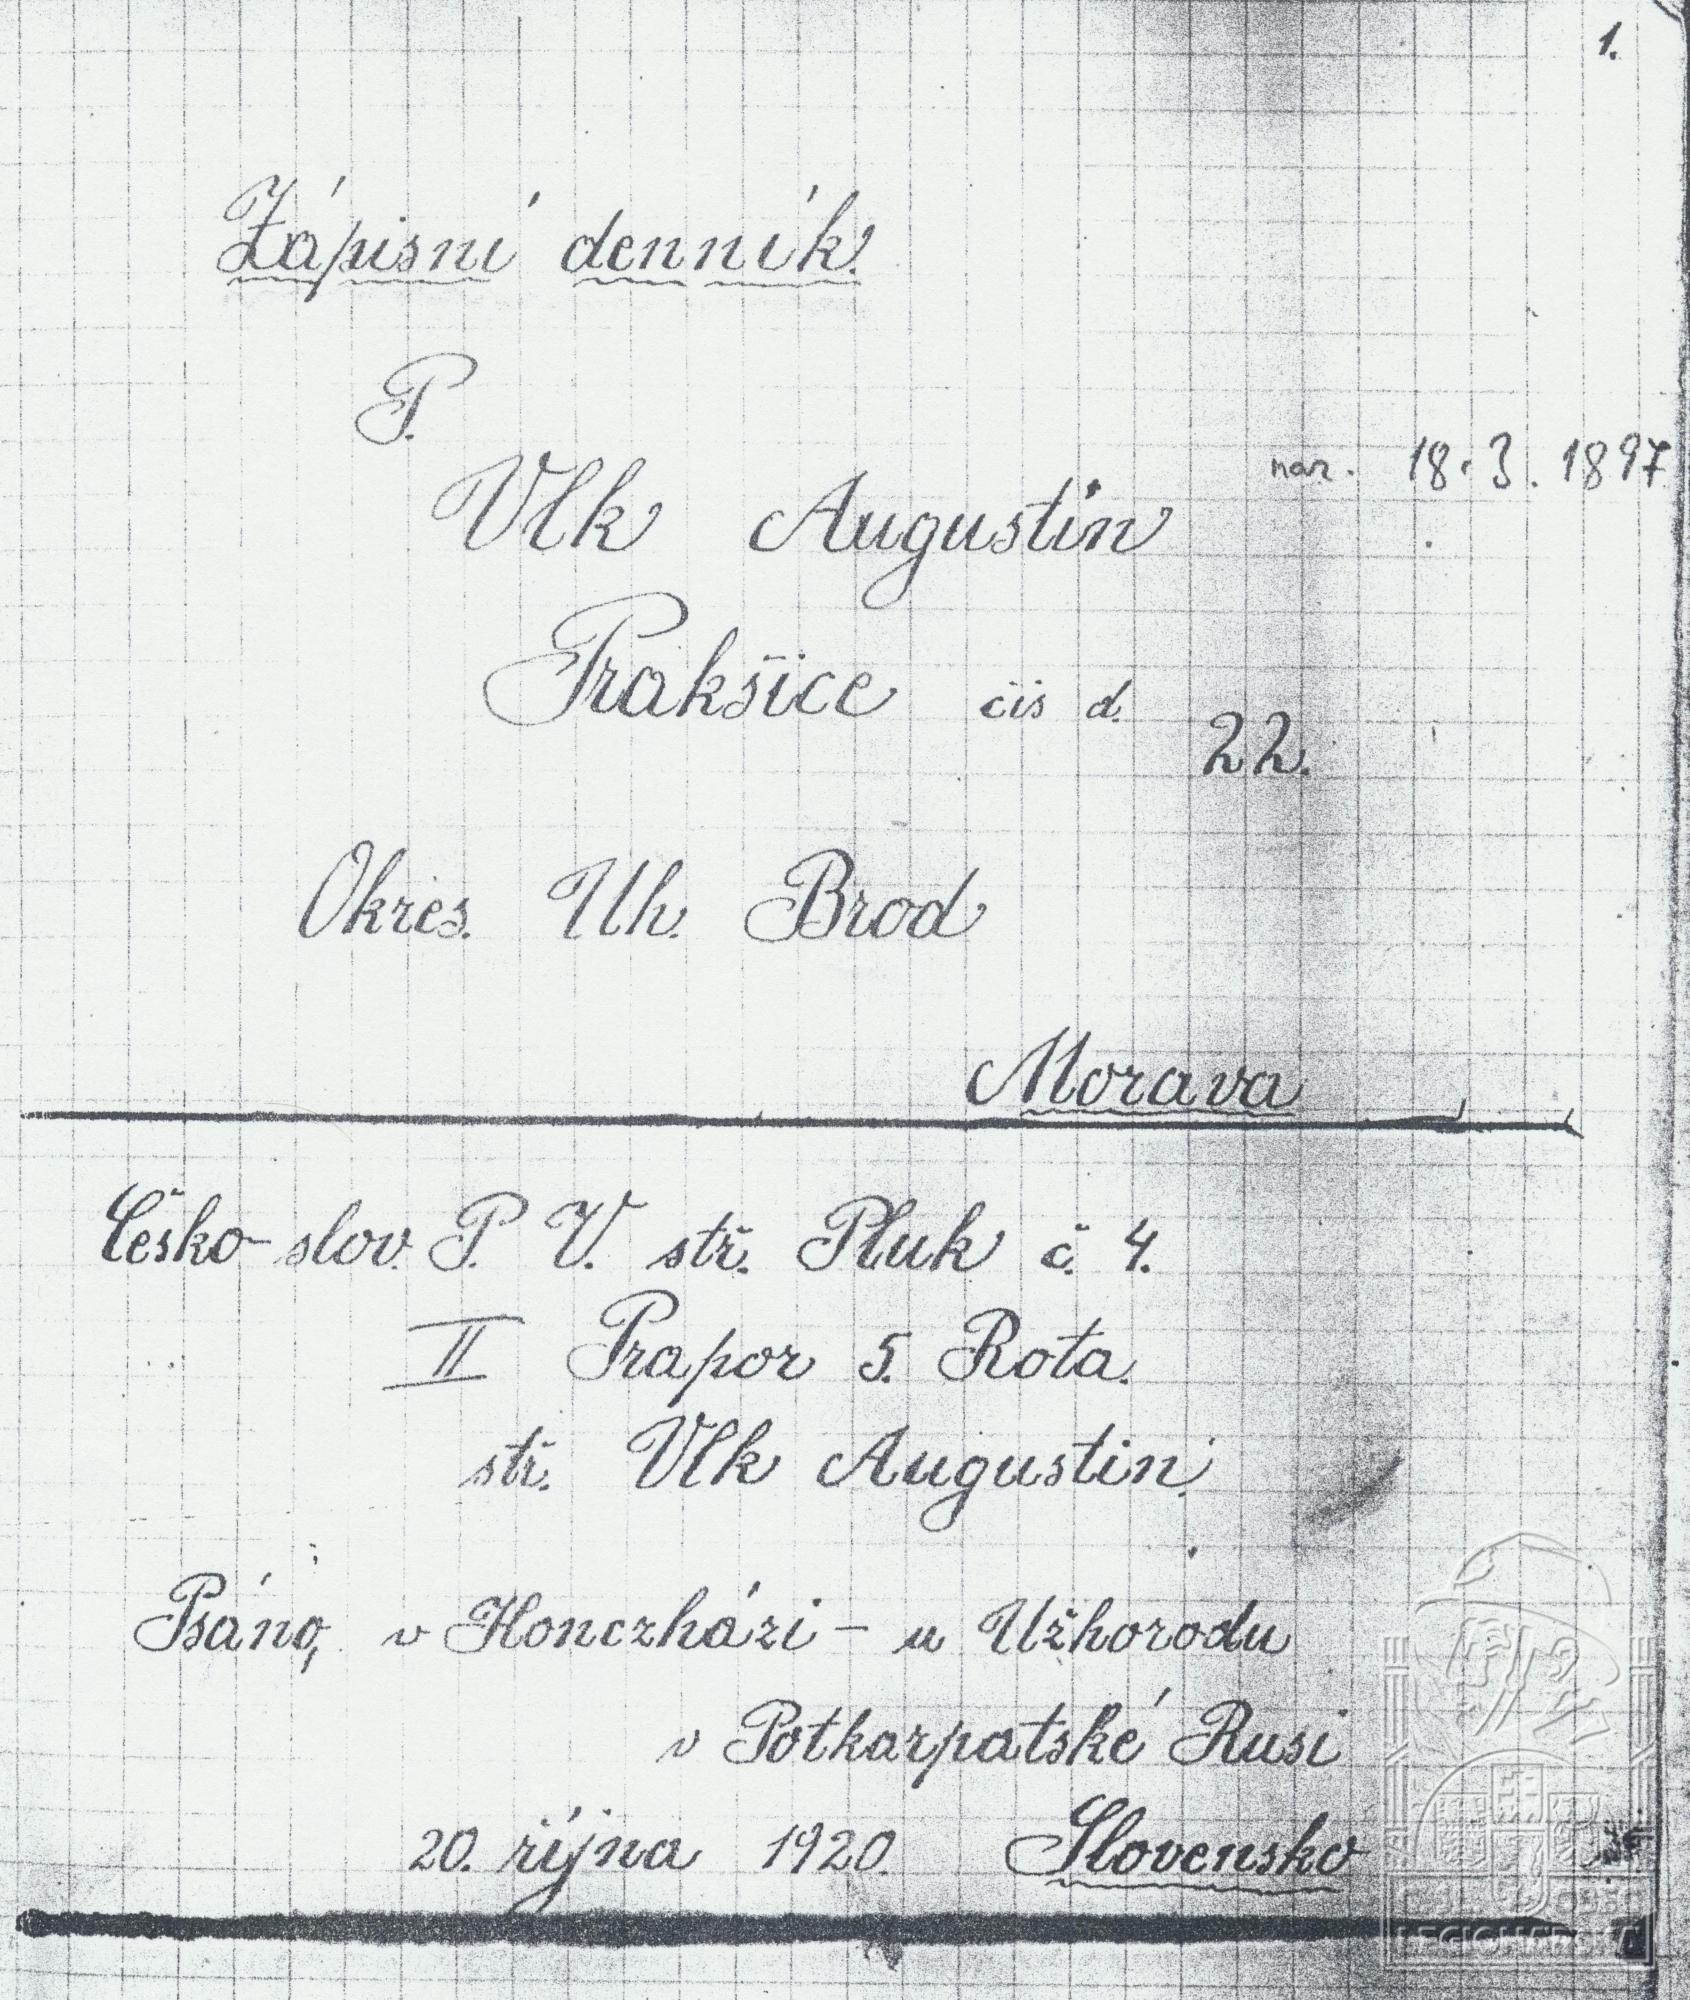 1.
Zápisní denník.
P.
Vlk Augustin nar. 18.3.1897
Prakšice čis d. 22.
Okres. Uh. Brod
Morava
Česko-slov. P. V. stř. Pluk č. 4.
II Prapor 5. Rota.
stř. Vlk Augustin.
Psáno, v Honczházi – u Užhorodu
v Potkarpatské Rusi
20. října 1920. Slovensko
ČSL. OBEC
LEGIONÁŘSKÁ